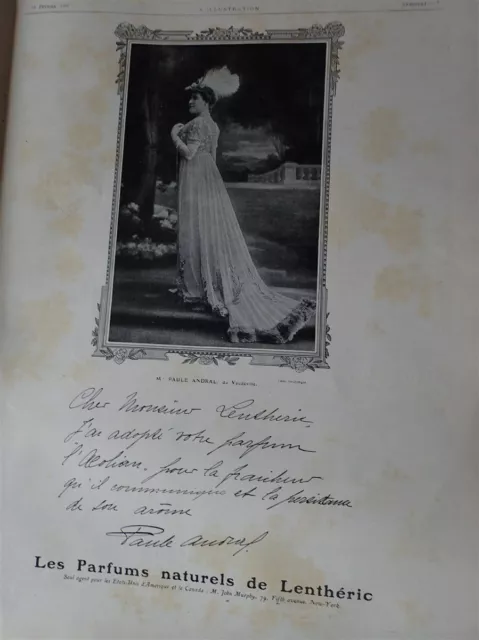 L'ILLUSTRATION
Mlle PAULE ANDRAL, du Vaudeville.
Cher Monsieur Lenthéric,
J'ai adopté votre parfum
l'Æolian, pour la fraicheur
qu'il communique et la persistance
de son arome
Paule Andral
Les Parfums naturels de Lenthéric
Seul agent pour les Etats-Unis d'Amérique et le Canada : M. John Murphy, 79, Fifth avenue, New-York.